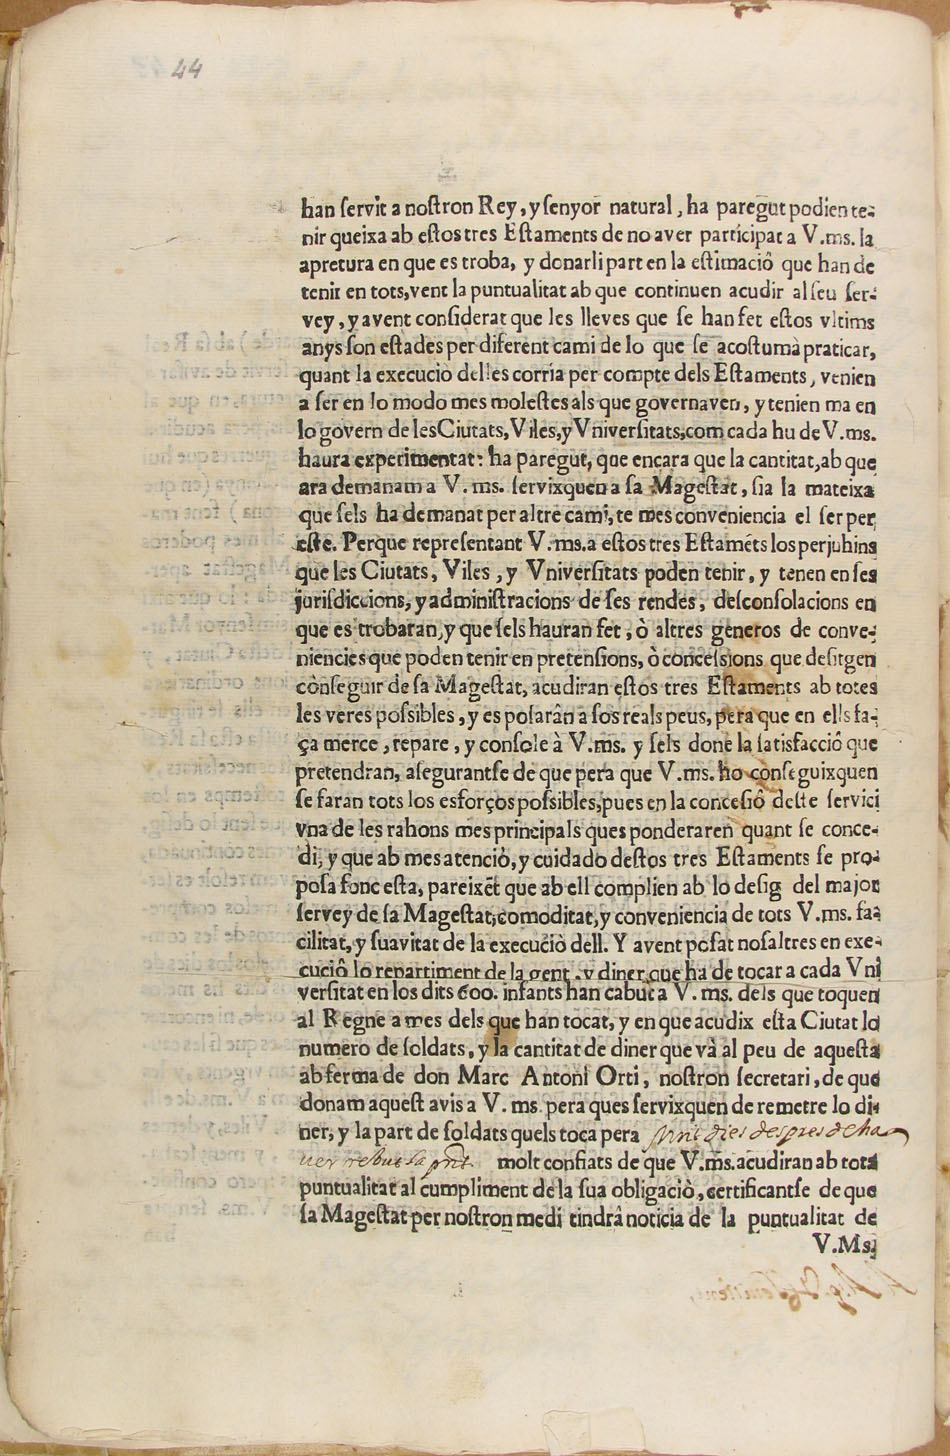 44
han ſervit a noſtron Rey, y ſenyor natural, ha paregut podien te-
nir queixa ab eſtos tres Eſtaments de no aver participat a V.ms. la
apretura en que es troba, y donarli part en la eſtimaciô que han de
tenir en tots, vent la puntualitat ab que continuen acudir al ſeu ſer-
vey, y avent conſiderat que les lleves que ſe han fet eſtos vltims
anys ſon eſtades per diferent cami de lo que ſe acoſtuma praticar,
quant la execuciò delles corria per compte dels Eſtaments, venien
a ſer en lo modo mes moleſtes als que governaven, y tenien ma en
lo govern de les Ciutats, Viles, y Vniverſitats, com cada hu de V.ms.
haura experimentat: ha paregut, que encara que la cantitat, ab que
ara demanam a V. ms. ſervixquen a ſa Mageſtat, ſia la mateixa
que ſels ha demanat per altre cami, te mes conveniencia el ſer per
eſte. Perque repreſentant V.ms. a eſtos tres Eſtaméts los perjuhins
que les Ciutats, Viles, y Vniverſitats poden tenir, y tenen en ſes
juriſdiccions, y adminiſtracions de ſes rendes, deſconſolacions en
que es trobaran, y que ſels hauran fet, ò altres generos de conve-
niencies que poden tenir en pretenſions, ò conceſsions que deſitgen
cònſeguir de ſa Mageſtat, acudiran eſtos tres Eſtaments ab totes
les veres poſsibles, y es poſaràn a ſos reals peus, pera que en ells fa-
ça merce, repare, y conſole à V.ms. y ſels done la ſatisfacciô que
pretendran, aſegurantſe de que pera que V.ms. ho conſeguixquen
ſe faran tots los esforços poſsibles, pues en la conceſiô deſte ſervici
vna de les rahons mes principals ques ponderaren quant ſe conce-
di, y que ab mes atenciò, y cuidado deſtos tres Eſtaments ſe pro-
poſa fonc eſta, pareixẽt que ab ell complien ab lo deſig del major
ſervey de ſa Mageſtat, comoditat, y conveniencia de tots V.ms. fa-
cilitat, y ſuavitat de la execuciò dell. Y avent poſat noſaltres en exe-
cuciô lo repartiment de la gent, y diner que ha de tocar a cada Vni
verſitat en los dits 600. infants han cabut a V. ms. dels que toquen
al Regne a mes dels que han tocat, y en que acudix eſta Ciutat lo
numero de ſoldats, y la cantitat de diner que và al peu de aqueſta
ab ferma de don Marc Antoni Orti, noſtron ſecretari, de que
donam aqueſt avis a V. ms. pera ques ſervixquen de remetre lo di-
ner, y la part de ſoldats quels toca pera vint dies despres de ha
ver rebut la pnt molt confiats de que V.ms. acudiran ab tota
puntualitat al cumpliment de la ſua obligaciò, certificantſe de que
ſa Mageſtat per noſtron medi tindrâ noticia de la puntualitat de
V.Ms.